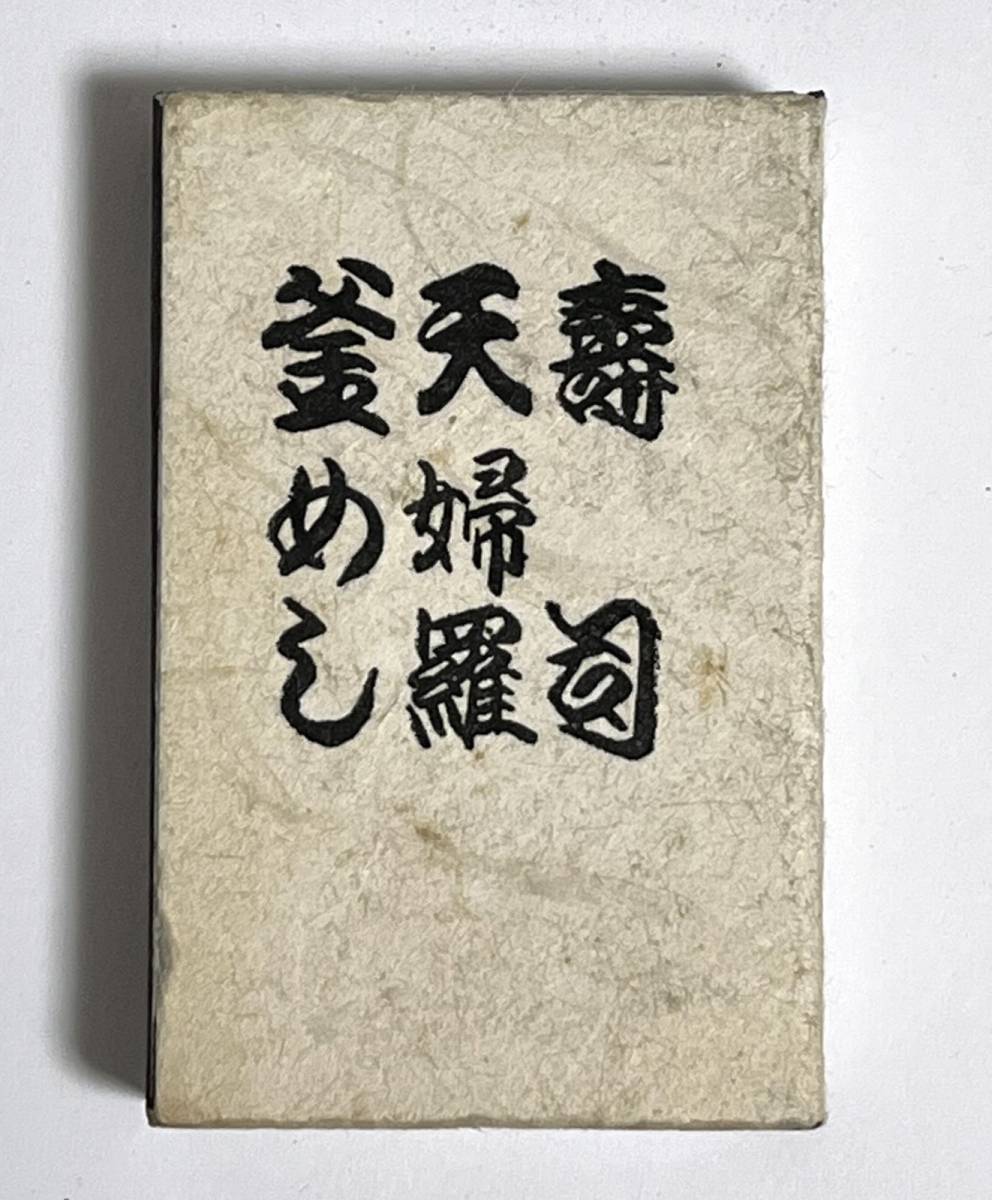 壽司
天婦羅
釜めし